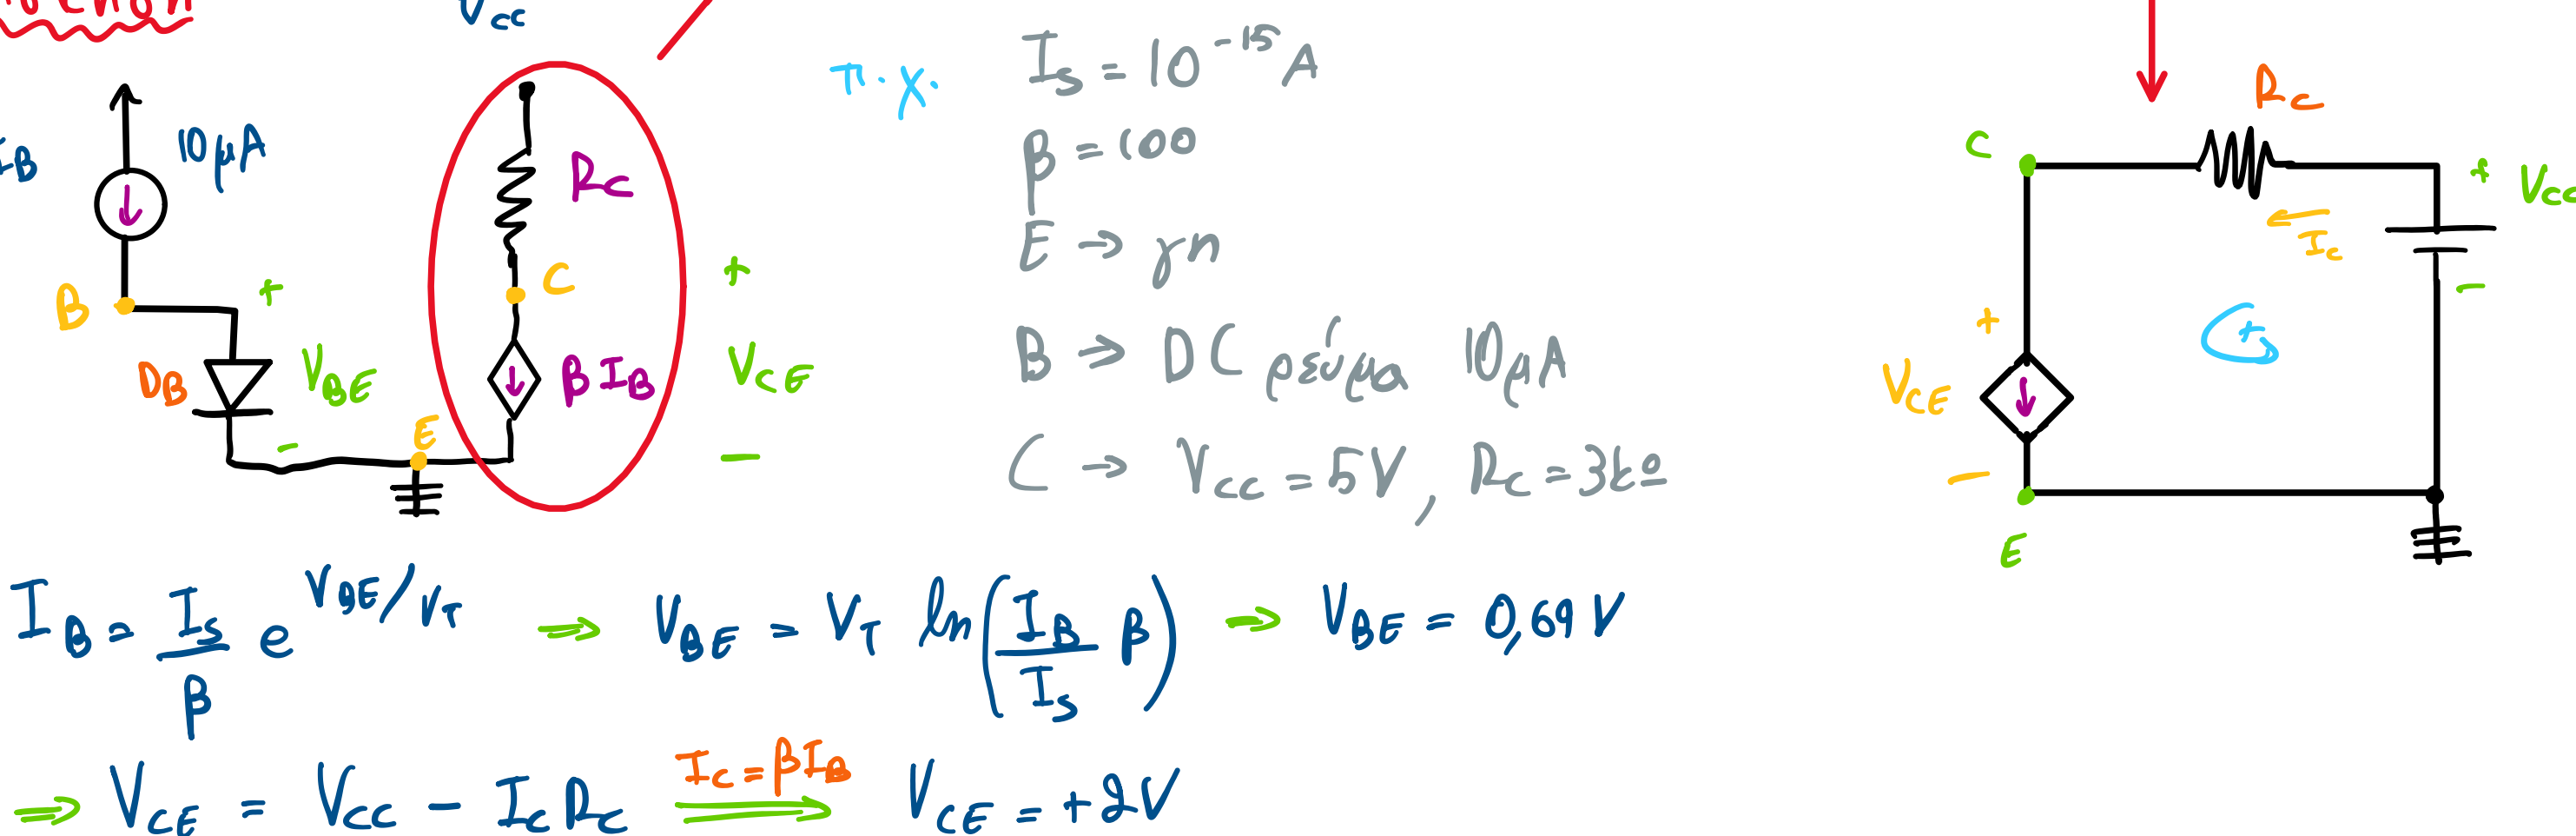 V_CC
10μA
R_C
C
βI_B
B
+
D_B
V_BE
-
E
+
V_CE
-
π.χ.
I_S = 10^-15 A
β = 100
E → γη
B → DC ρεύμα 10μA
C → V_CC = 5V, R_C = 3kΩ
R_C
C
+
V_CC
I_C
-
+
V_CE
-
+
E
I_B = I_S/β e^(V_BE/V_T) ⇒ V_BE = V_T ln(I_B/I_S β) ⇒ V_BE = 0,69 V
⇒ V_CE = V_CC - I_C R_C I_C = βI_B ⇒ V_CE = +2V